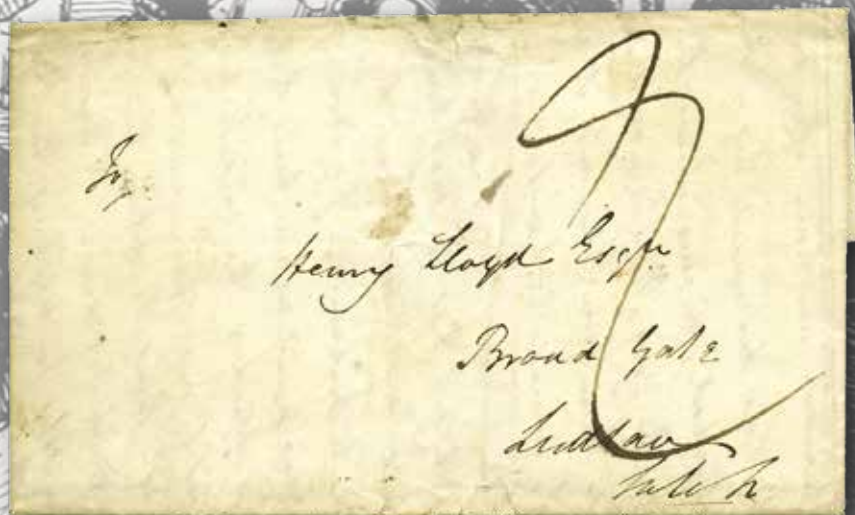 To
Henry Lloyd Esqr
Broad Gate
Ludlow
Salop